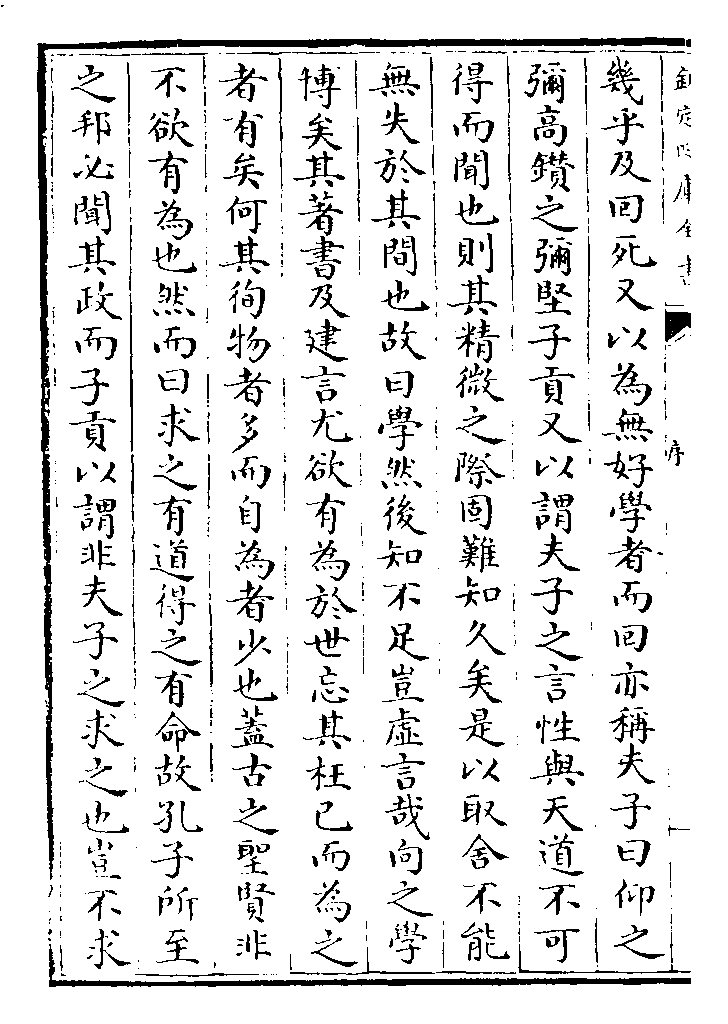 欽定四庫全書
序
幾乎及回死又以為無好學者而回亦稱夫子曰仰之
彌高鑽之彌堅子貢又以謂夫子之言性與天道不可
得而聞也則其精微之際固難知久矣是以取舍不能
無失於其間也故曰學然後知不足豈虛言哉向之學
博矣其著書及建言尤欲有為於世忘其枉已而為之
者有矣何其徇物者多而自為者少也蓋古之聖賢非
不欲有為也然而曰求之有道得之有命故孔子所至
之邦必聞其政而子貢以謂非夫子之求之也豈不求